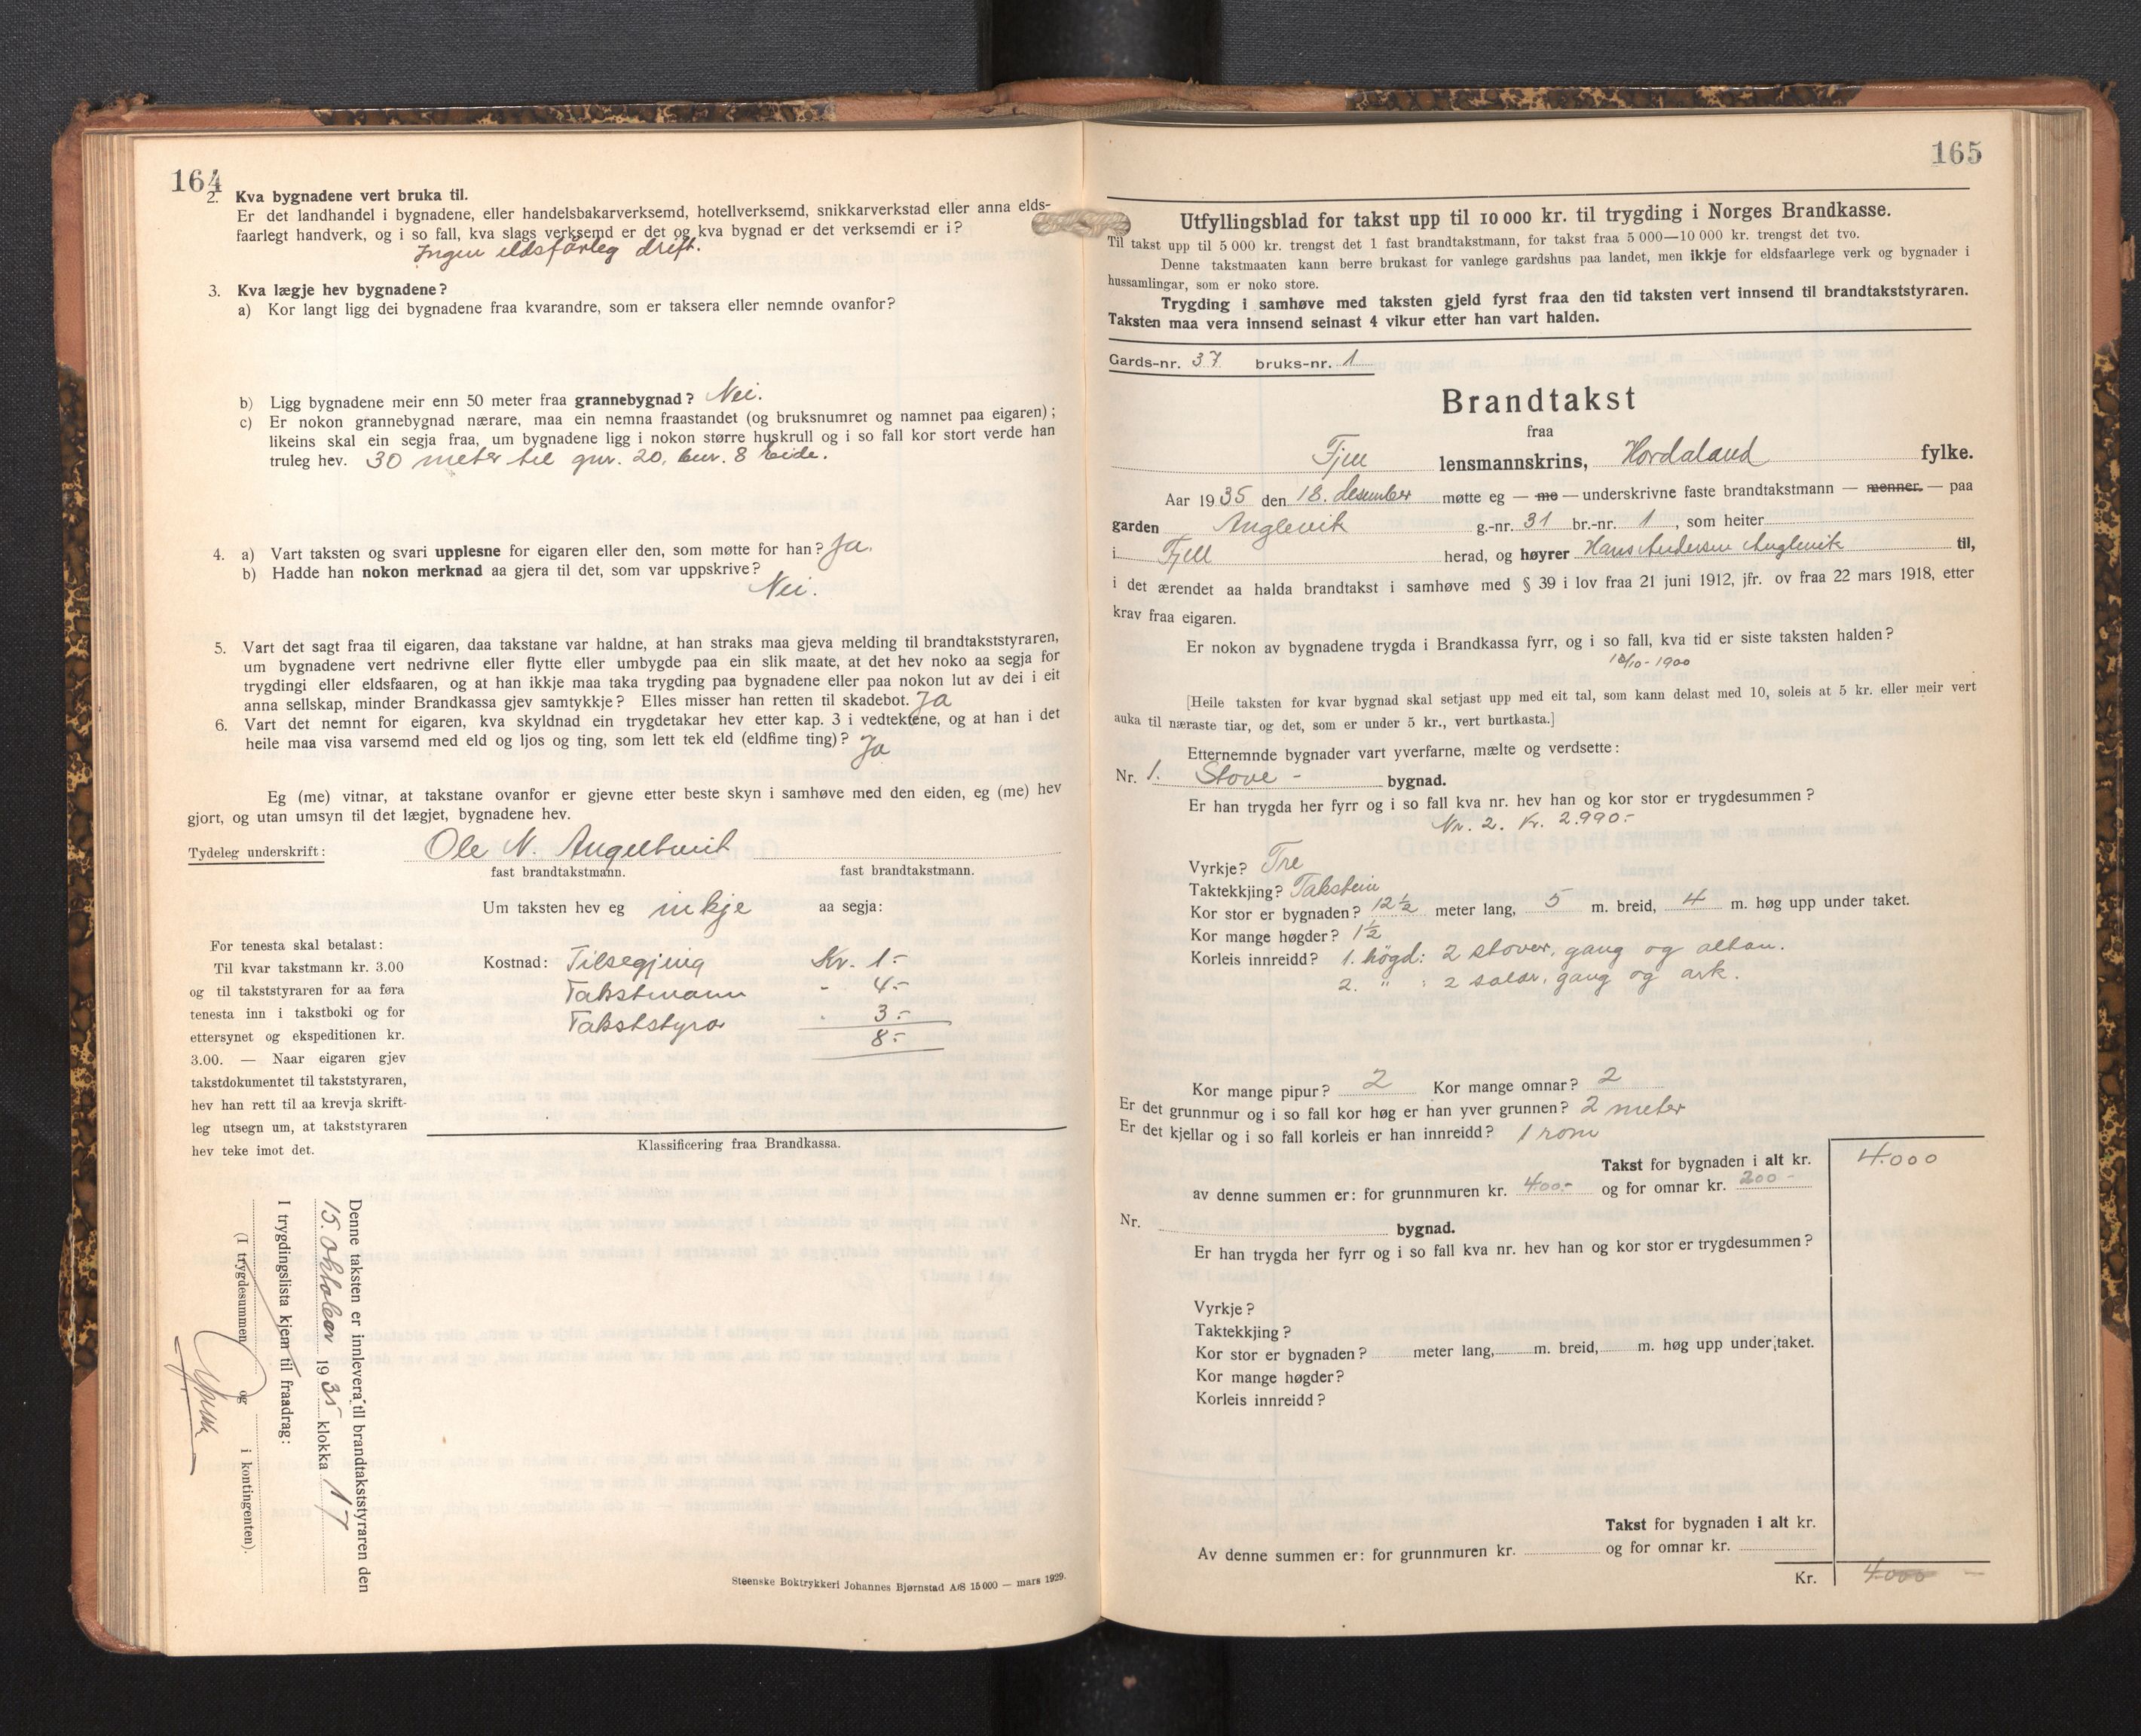 164
2. Kva bygnadene vert bruka til.
Er det landhandel i bygnadene, eller handelsbakarverksemd, hotellverksemd, snikkarverkstad eller anna elds-
faarlegt handverk, og i so fall, kva slags verksemd er det og kva bygnad er det verksemdi er i?
Ingen eldsfårleg drift.
3. Kva lægje hev bygnadene?
a) Kor langt ligg dei bygnadene fraa kvarandre, som er taksera eller nemnde ovanfor?
b) Ligg bygnadene meir enn 50 meter fraa grannebygnad? Nei.
c) Er nokon grannebygnad nærare, maa ein nemna fraastandet (og bruksnumret og namnet paa eigaren);
likeins skal ein segja fraa, um bygnadene ligg i nokon større huskrull og i so fall kor stort verde han
truleg hev. 30 meter til gnr. 20, bnr. 8 Eide.
4. a) Vart taksten og svari upplesne for eigaren eller den, som møtte for han? Ja.
b) Hadde han nokon merknad aa gjera til det, som var uppskrive?
Nei.
5. Vart det sagt fraa til eigaren, daa takstane var haldne, at han straks maa gjeva melding til brandtakststyraren,
um bygnadene vert nedrivne eller flytte eller umbygde paa ein slik maate, at det hev noko aa segja for
trygdingi eller eldsfaaren, og at han ikkje maa taka trygding paa bygnadene eller paa nokon lut av dei i eit
anna sellskap, minder Brandkassa gjev samtykkje? Elles misser han retten til skadebot. Ja
6. Vart det nemnt for eigaren, kva skyldnad ein trygdetakar hev etter kap. 3 i vedtektene, og at han i det
heile maa visa varsemd med eld og ljos og ting, som lett tek eld (eldfime ting)? Ja
Eg (me) vitnar, at takstane ovanfor er gjevne etter beste skyn i samhøve med den eiden, eg (me) hev
gjort, og utan umsyn til det lægjet, bygnadene hev.
Tydeleg underskrift: Ole N. Angeltveit
fast brandtakstmann. fast brandtakstmann.
Um taksten hev eg inkje aa segja:
For tenesta skal betalast:
Til kvar takstmann kr. 3.00
og til takststyraren for aa føra
tenesta inn i takstboki og for
ettersynet og ekspeditionen kr.
3.00. — Naar eigaren gjev
takstdokumentet til takststyraren,
hev han rett til aa krevja skrift-
leg utsegn um, at takststyraren
hev teke imot det.
Kostnad: Tilsegjing Kr. 1.-
Takstmann - 4.-
Takststyrar - 3.-
8.-
Klassificering fraa Brandkassa.
Denne taksten er innlevera til brandtakststyraren den
15. oktober 1935 klokka 17
I trygdingslista kjem til fraadrag:
(I trygdesummen og i kontingenten).
Steenske Boktrykkeri Johannes Bjørnstad A/S 15000 — mars 1929.
165
Utfyllingsblad for takst upp til 10 000 kr. til trygding i Norges Brandkasse.
Til takst upp til 5 000 kr. trengst det 1 fast brandtakstmann, for takst fraa 5 000—10 000 kr. trengst det tvo.
Denne takstmaaten kann berre brukast for vanlege gardshus paa landet, men ikkje for eldsfaarlege verk og bygnader i
hussamlingar, som er noko store.
Trygding i samhøve med taksten gjeld fyrst fraa den tid taksten vert innsend til brandtakststyraren.
Taksten maa vera innsend seinast 4 vikur etter han vart halden.
Gards-nr. 37 bruks-nr. 1
Brandtakst
fraa
Fjell lensmannskrins, Hordaland fylke.
Aar 1935 den 18. desember møtte eg — me — underskrivne faste brandtakstmann — menner. — paa
garden Anglevik g.-nr. 31 br.-nr. 1, som heiter
i Fjell herad, og høyrer Hans Andersen Anglevik til,
i det ærendet aa halda brandtakst i samhøve med § 39 i lov fraa 21 juni 1912, jfr. ov fraa 22 mars 1918, etter
krav fraa eigaren.
Er nokon av bygnadene trygda i Brandkassa fyrr, og i so fall, kva tid er siste taksten halden?
18/10-1900
[Heile taksten for kvar bygnad skal setjast upp med eit tal, som kann delast med 10, soleis at 5 kr. eller meir vert
auka til næraste tiar, og det, som er under 5 kr., vert burtkasta.]
Etternemnde bygnader vart yverfarne, mælte og verdsette:
Nr. 1. Stove - bygnad.
Er han trygda her fyrr og i so fall kva nr. hev han og kor stor er trygdesummen?
Nr. 2. Kr. 2.990.-
Vyrkje? Tre
Taktekkjing? Takstein
Kor stor er bygnaden? 12 1/2 meter lang, 5 m. breid, 4 m. høg upp under taket.
Kor mange høgder? 1 1/2
Korleis innreidd? 1. högd: 2 stover, gang og altan.
2. " : 2 salar, gang og ark.
Kor mange pipur? 2 Kor mange omnar? 2
Er det grunnmur og i so fall kor høg er han yver grunnen? 2 meter
Er det kjellar og i so fall korleis er han innreidd? 1 rom
Takst for bygnaden i alt kr. 4.000
av denne summen er: for grunnmuren kr. 400.- og for omnar kr. 200 -
Nr. bygnad.
Er han trygda her fyrr og i so fall kva nr. hev han og kor stor er trygdesummen?
Vyrkje?
Taktekkjing?
Kor stor er bygnaden? meter lang, m. breid, m. høg upp under taket.
Kor mange høgder?
Korleis innreidd?
Takst for bygnaden i alt kr.
Av denne summen er: for grunnmuren kr. og for omnar kr.
Kr. 4.000 -